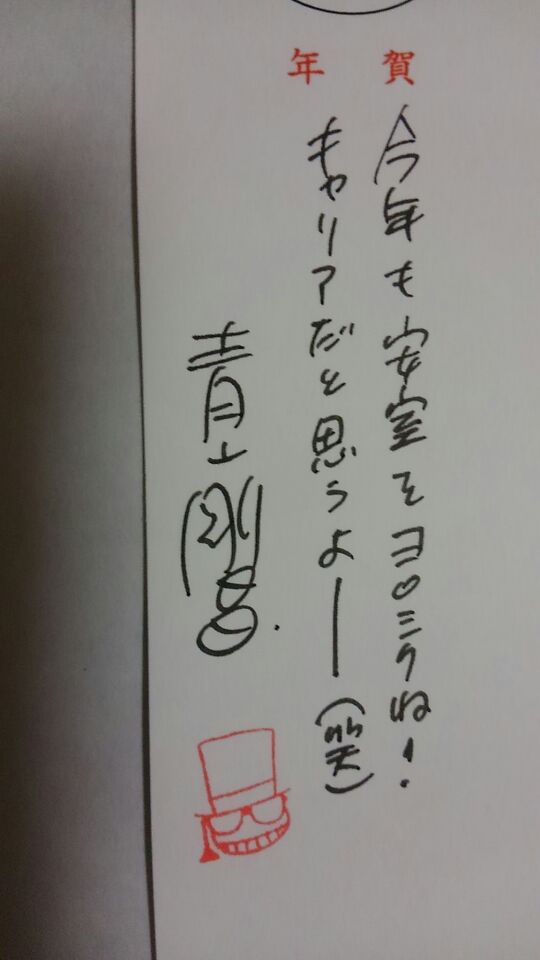 賀
年
今年も安室をヨロシクね!
キャリアだと思うよー(笑)
青山剛昌